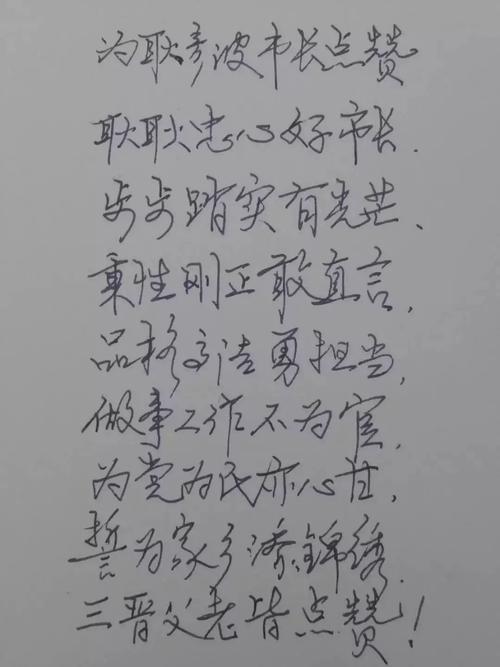 为耿彦波市长点赞
耿耿忠心好市长.
步步踏实有光芒、
秉性刚正敢直言,
品格高洁勇担当,
做事工作不为官,
为党为民亦心甘,
誓为家乡添锦绣
三晋父老皆点赞!